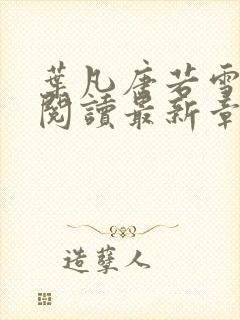 葉凡唐若雪
閱讀最新章
造孽人